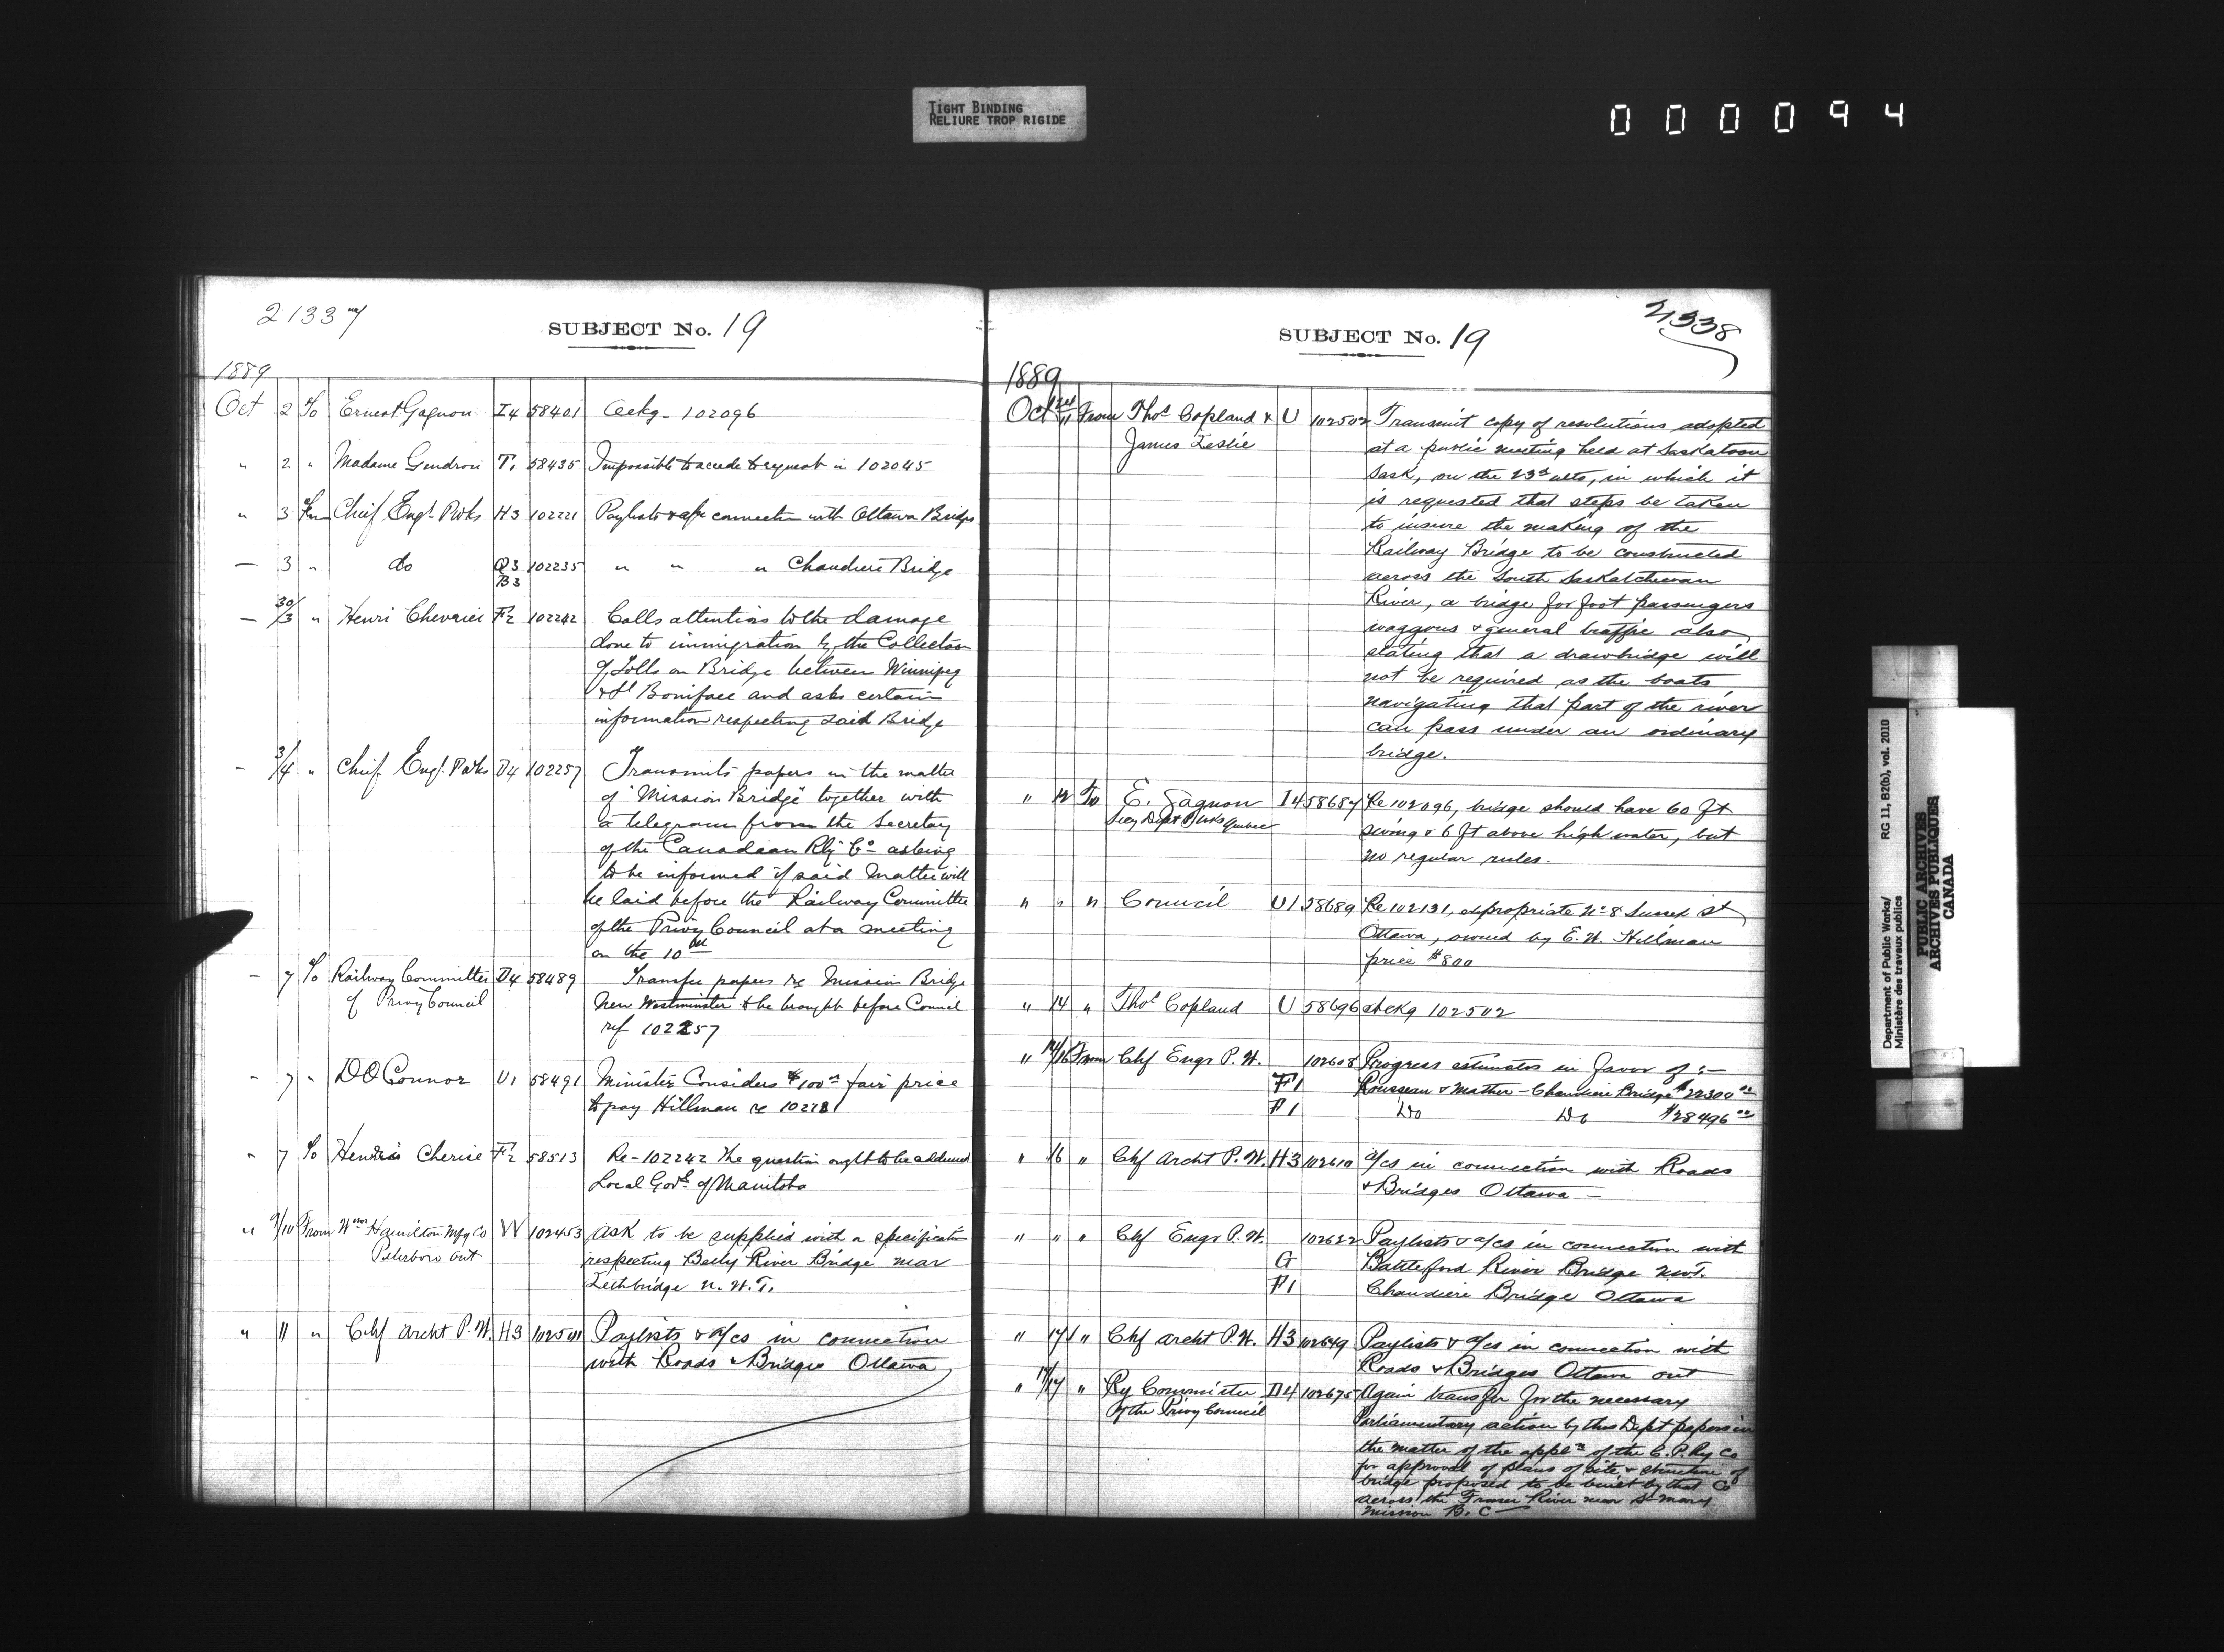 TIGHT BINDING
RELIURE TROP RIGIDE
000094
21337
SUBJECT No. 19
1889
Oct 2 To Ernest Gagnon I4 58401 Ackg - 102096
" 2 " Madame Gendron T1 58435 Impossible to accede to request in 102045
" 3 Fm Chief Engr Pwks H3 102221 Paylists & a/cs connection with Ottawa Bridges
— 3 " do Q3 102235 " " " Chaudiere Bridge
B3
— 30/3 " Henri Chevrier F2 102242 Calls attention to the damage
done to immigration by the Collection
of Tolls on Bridge between Winnipeg
& St Boniface and asks certain
information respecting said Bridge
- 3/4 " Chief Engr. Pwks D4 102257 Transmits papers in the matter
of "Mission Bridge" together with
a telegram from the Secretary
of the Canadian Rly Co asking
to be informed if said matter will
be laid before the Railway Committee
of the Privy Council at a meeting
on the 10th
- 7 To Railway Committee D4 58489 Transfer papers re Mission Bridge
of Privy Council New Westminster to be brought before Council
ref 102257
- 7 " D O Connor U1 58491 Minister Considers $100 fair price
to pay Hillman re
" 7 To Cherier F2 58513 Re - 102242 The question ought to be addressed
Local Govt of Manitoba
" 9/10 From Wm Hamilton Mfg Co W 102453 Ask to be supplied with a specification
Peterboro Ont respecting Belly River Bridge near
Lethbridge N.W.T.
" 11 " Chf Archt P.W. H3 102501 Paylists & a/cs in connection
with Roads & Bridges Ottawa
21338
SUBJECT No. 19
1889
Oct 11 From Thos Copland & U 102502 Transmit copy of resolutions adopted
James Leslie at a public meeting held at Saskatoon
Sask, on the 23d ulto, in which it
is requested that steps be taken
to insure the making of the
Railway Bridge to be constructed
across the South Saskatchewan
River, a bridge for foot passengers
waggons & general traffic also,
stating that a drawbridge will
not be required as the boats
navigating that part of the river
can pass under an ordinary
bridge.
" 12 To E. Gagnon I4 58657 Re 102096, bridge should have 60 ft
Secy Dept P Wks Quebec swing & 6 ft above high water, but
no regular rules.
" " " Council U1 58689 Re 102131, expropriate No 8 Sussex St
Ottawa, owned by E. W. Hillman
price $800
" 14 " Thos Copland U 58696 Ackg 102502
" 14/16 From Chf Engr P.W. 102608 Progress estimates in favor of :—
F1 Rousseau & Mather - Chaudiere Bridge $22300 00
F1 Do Do $28496 00
" 16 " Chf Archt P.W. H3 102610 a/cs in connection with Roads
& Bridges Ottawa —
" " " Chf Engr P.W. 102622 Paylists & a/cs in connection with
G Battleford River Bridge N.W.T.
F1 Chaudiere Bridge Ottawa
" 17 " Chf Archt P.W. H3 102649 Paylists & a/cs in connection with
Roads & Bridges Ottawa Ont
" 17 " Ry Committee D4 102675 Again transfer for the necessary
Of the Privy Council Parliamentary action by this Dept papers in
the matter of the appln of the C.P. Ry Co
for approval of plans of site & structure of
bridge proposed to be built by that Co
across the Fraser River near St Mary
Mission B.C —
Department of Public Works/
Ministère des travaux publics
RG 11, B2(b), vol. 2010
PUBLIC ARCHIVES
ARCHIVES PUBLIQUES
CANADA